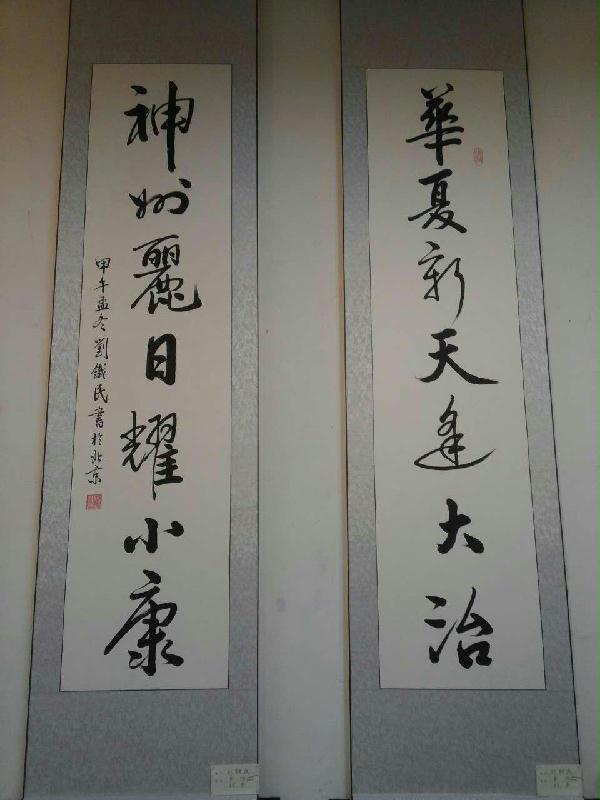 華夏新天逢大治
神州麗日耀小康
甲午孟冬劉鐵民書於北京